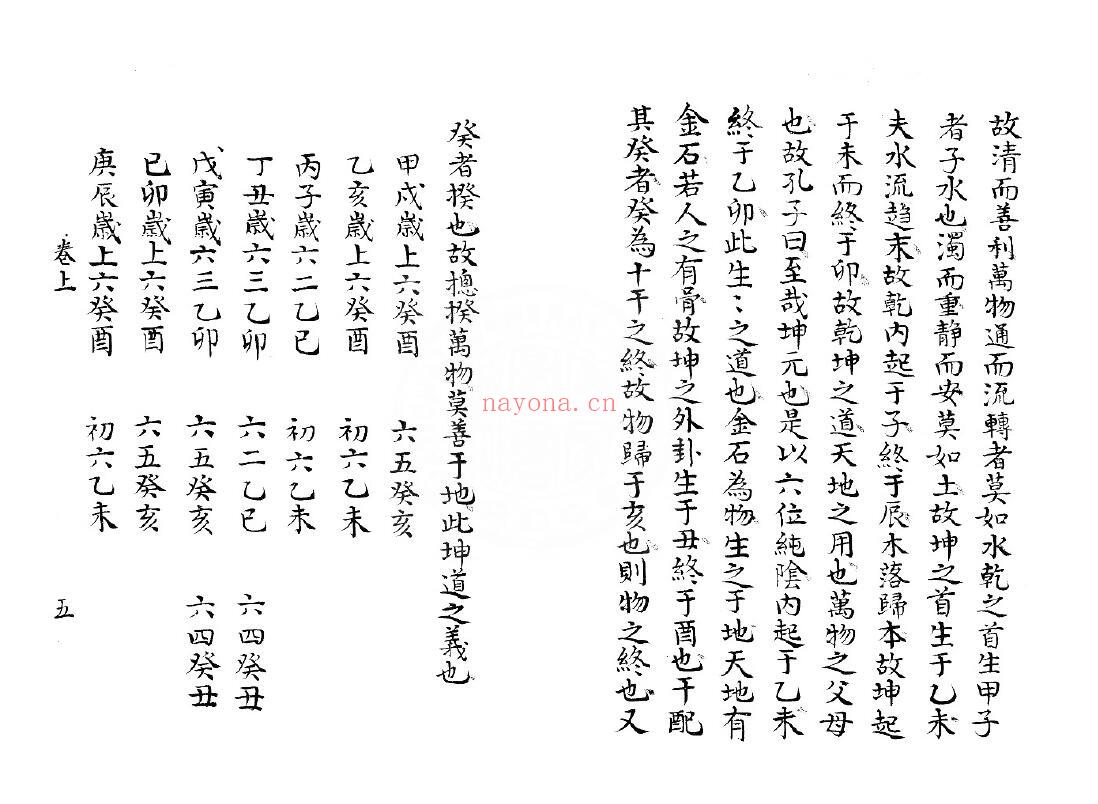 故清而善利萬物通而流轉者莫如水乾之首生甲子
者子水也濁而重静而安莫如土故坤之首生于乙未
夫水流趋末故乾内起于子終于辰木落歸本故坤起
于未而終于卯故乾坤之道天地之用也萬物之父母
也故孔子曰至哉坤元也是以六位純陰内起于乙未
終于乙卯此生〻之道也金石為物生之于地天地有
金石若人之有骨故坤之外卦生于丑終于酉也干配
其癸者癸為十干之終故物歸于亥也則物之終也又
癸者揆也故摠揆萬物莫善于地此坤道之義也
甲戌歲上六癸酉 六五癸亥
乙亥歲上六癸酉 初六乙未
丙子歲六二乙巳 初六乙未
丁丑歲六三乙卯 六二乙巳 六四癸丑
戊寅歲六三乙卯 六五癸亥 六四癸丑
己卯歲上六癸酉 六五癸亥
庚辰歲上六癸酉 初六乙未
卷上 五
nayona.cn